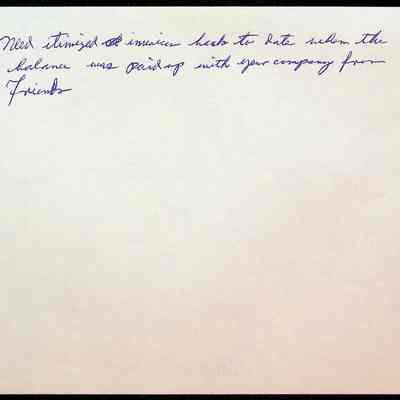 Need itimized invoices back to date when the
balance was paid up with your company from
Friends